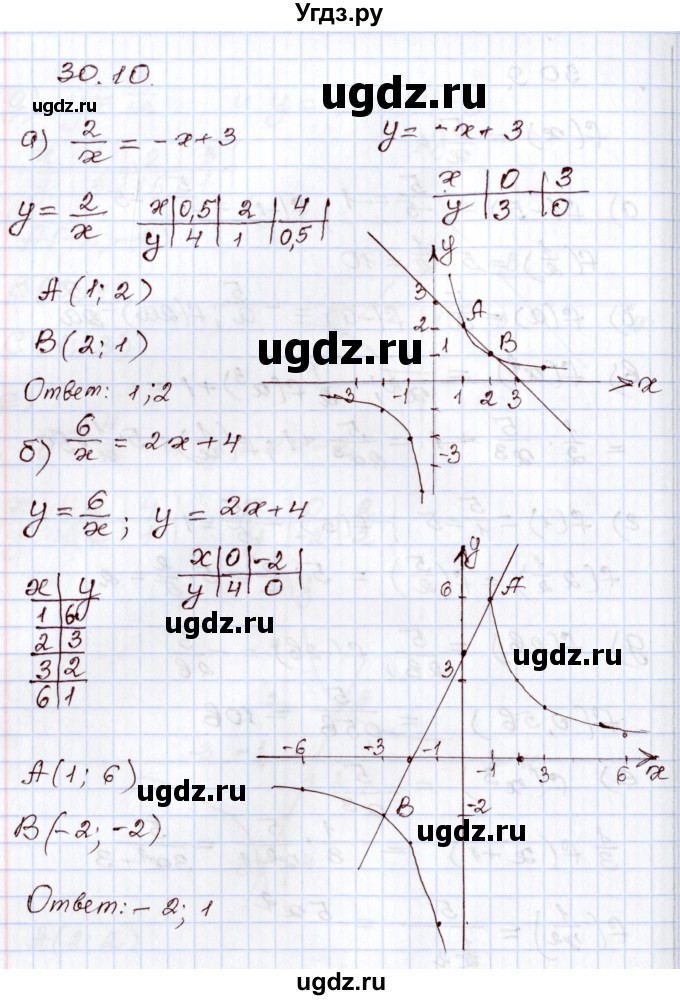 Угдз.ру
30.10.
а) 2/x = -x+3
y = -x+3
x | 0 | 3
y | 3 | 0
y = 2/x
x | 0,5 | 2 | 4
y | 4 | 1 | 0,5
A(1; 2)
B(2; 1)
Ответ: 1; 2
y
3
2
1
A
B
-3 -1 1 2 3 x
-3
б) 6/x = 2x+4
y = 6/x; y = 2x+4
x | 0 | -2
y | 4 | 0
x | y
1 | 6
2 | 3
3 | 2
6 | 1
y
6
A
3
-6 -3 -1 -1 3 6 x
B
-2
A(1; 6)
B(-2; -2).
Ответ: -2; 1
ugdz.ru
ugdz.ru
ugdz.ru
ugdz.ru
ugdz.ru
ugdz.ru
ugdz.ru
ugdz.ru
ugdz.ru
ugdz.ru